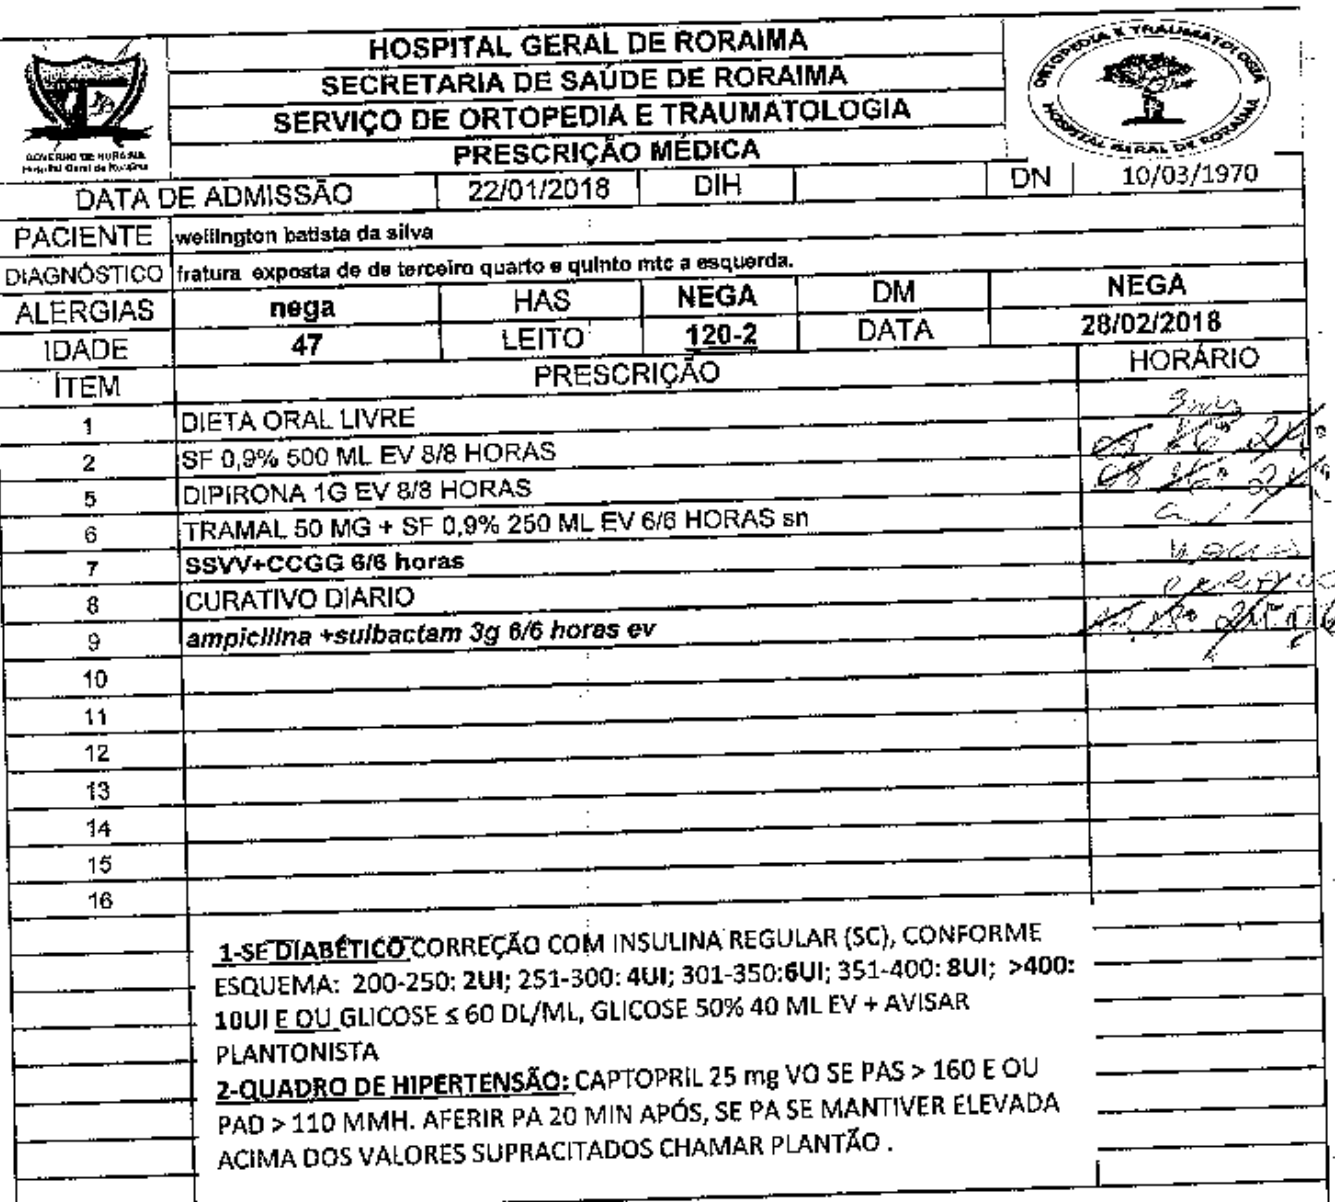 HOSPITAL GERAL DE RORAIMA
SECRETARIA DE SAÚDE DE RORAIMA
SERVIÇO DE ORTOPEDIA E TRAUMATOLOGIA
PRESCRIÇÃO MÉDICA
ORTOPEDIA E TRAUMATOLOGIA
HOSPITAL GERAL DE RORAIMA
GOVERNO DE RORAIMA
Hospital Geral de Roraima
DATA DE ADMISSÃO 22/01/2018 DIH DN 10/03/1970
PACIENTE wellington batista da silva
DIAGNÓSTICO fratura exposta de de terceiro quarto e quinto mtc a esquerda.
ALERGIAS nega HAS NEGA DM NEGA
IDADE 47 LEITO 120-2 DATA 28/02/2018
ÍTEM PRESCRIÇÃO HORÁRIO
1 DIETA ORAL LIVRE
2 SF 0,9% 500 ML EV 8/8 HORAS 16 24
5 DIPIRONA 1G EV 8/8 HORAS 08 16 24
6 TRAMAL 50 MG + SF 0,9% 250 ML EV 6/6 HORAS sn
7 SSVV+CCGG 6/6 horas
8 CURATIVO DIARIO
9 ampicilina +sulbactam 3g 6/6 horas ev
10
11
12
13
14
15
16
1-SE DIABÉTICO CORREÇÃO COM INSULINA REGULAR (SC), CONFORME
ESQUEMA: 200-250: 2UI; 251-300: 4UI; 301-350:6UI; 351-400: 8UI; >400:
10UI E OU GLICOSE ≤ 60 DL/ML, GLICOSE 50% 40 ML EV + AVISAR
PLANTONISTA
2-QUADRO DE HIPERTENSÃO: CAPTOPRIL 25 mg VO SE PAS > 160 E OU
PAD > 110 MMH. AFERIR PA 20 MIN APÓS, SE PA SE MANTIVER ELEVADA
ACIMA DOS VALORES SUPRACITADOS CHAMAR PLANTÃO .